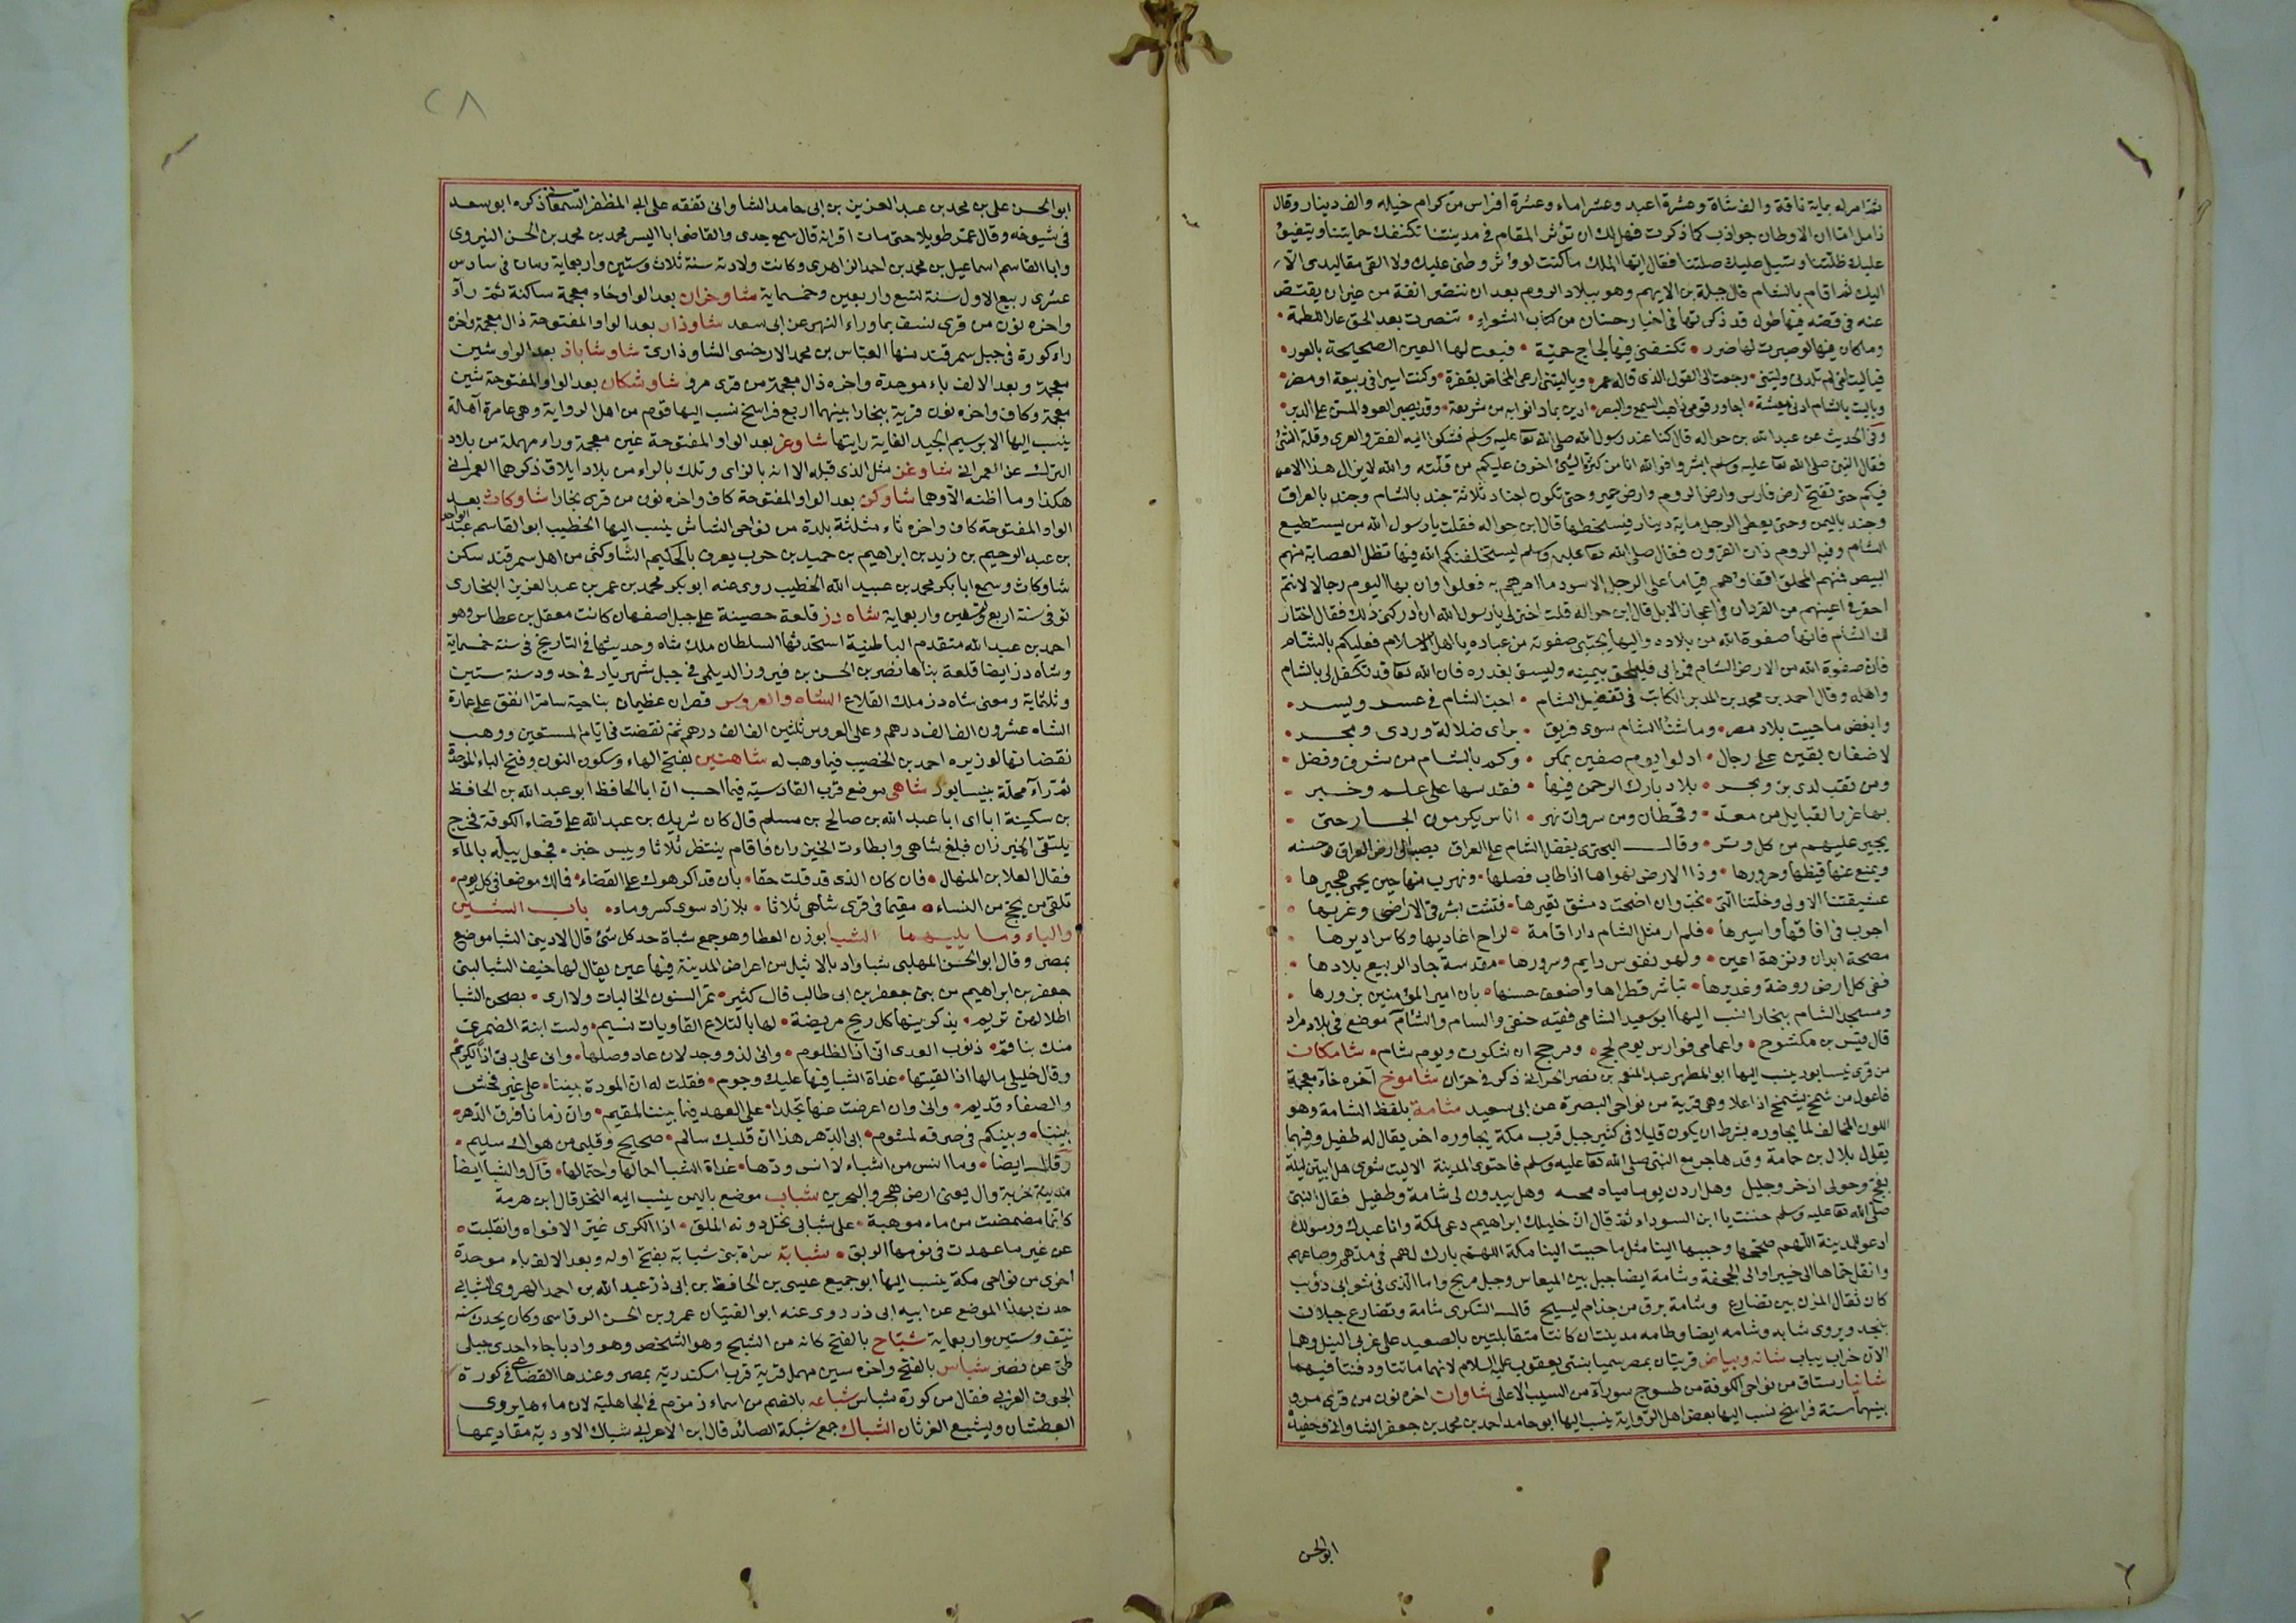 ثم امر له بماية ناقة والف شاة وعشرة اعبد وعشر اماء وعشرة افراس من كرام خيله والف دينار وقال
زامل اما ان الاوطان جواذب كما ذكرت فهل لك ان تؤثر المقام في مدينتنا تكنفك حمايتنا ويتفيؤ
عليك ظلتنا وتسيل عليك صلتنا فقال ايها الملك ما كنت لاوثر وطني عليك ولا القي مقاليدي الا
اليك ثم اقام بالشام قال جبلة بن الايهم وهو ببلاد الروم بعد ان تنصر انفة من غير ان يقتص
عنه في قصه فيها طول قد ذكرتها في اخبار حسان من كتاب الشعراء • تنصرت بعد الحق عارا للطمة •
وما كان فيها لو صبرت لها ضرر • تكنفني فيها لجاج حمية • فبعت لها العين الصحيحة بالعور •
فيا ليت امي لم تلدني وليتني • رجعت الى القول الذي قاله عمر • ويا ليتني ارعى المخاض بقفرة • وكنت اسيرا في ربيعة او مضر •
ويا ليت بالشام ادنى معيشة • اجاور قومي ذاهب السمع والبصر • ادين بما دانوا به من شريعة • وقد يصبر العود المسن على الدبر •
وفي الحديث عن عبد الله بن حواله قال كنا عند رسول الله صلى الله تعا عليه وسلم فشكوا اليه الفقر والعري وقلة الشئ
فقال النبي صلى الله تعا عليه وسلم ابشروا فوالله انا من كثرة الشئ اخوف عليكم من قلته والله لا يزال هذا الامر
فيكم حتى تفتح ارض فارس وارض الروم وارض حمير وحتى تكون اجناد ثلاثة جند بالشام وجند بالعراق
وجند باليمن وحتى يعطى الرجل ماية دينار فيسخطها قال ابن حواله فقلت يا رسول الله من يستطيع
الشام وفيه الروم ذات القرون فقال صلى الله تعا عليه وسلم ليستخلفنكم الله فيها تظل العصابة منهم
البيض قمصهم المحلق اقفاؤهم قياما على الرجل الاسود ما امرهم به فعلوا وان بها اليوم رجالا لانتم
احقر في اعينهم من القردان في اعجاز الابل قال ابن حواله قلت اختر لي يا رسول الله ان ادركني ذلك فقال اختار
لك الشام فانها صفوة الله من بلاده واليها يجتبي صفوته من عباده يا اهل الاسلام فعليكم بالشام
فان صفوة الله من الارض الشام فمن ابى فليلحق بيمينه وليسق بغدره فان الله تعا قد تكفل لي بالشام
واهله وقال احمد بن محمد بن المدبر الكاتب في تفضيل الشام • احب الشام في عسر ويسر •
وابغض ما حييت بلاد مصر • وما شنأ الشام سوى فريق • براى ضلالة وردى ومحر •
لاضغان بقين على رجال • اذلوا يوم صفين بمكر • وكم بالشام من شرف وفضل •
ومن تقب لدى بر وبحر • بلاد بارك الرحمن فيها • فقدسها على علم وخبر •
بها غرر القبايل من معد • وقحطان ومن سروات نهر • اناس يكرمون الجار حتى •
يجير عليهم من كل وتر • وقال البحتري يفضل الشام على العراق يصب الى ارض العراق وحسنه
ويمنع عنها قيظها وحرورها • وذا الارض نهواها اذا طاب فصلها • ونهرب منها حين يحمى هجيرها •
عشيقتنا الاولى وخلتنا التي • نحب وان اضحت دمشق تغيرها • فتشت شرق الاراضي وغربها •
اجوب في افاقها واسيرها • فلم ار مثل الشام دار اقامة • لراح اغاديها وكاس اديرها •
مصحة ابدان ونزهة اعين • ولهو نفوس دايم وسرورها • مقدسة جاد الربيع بلادها •
ففي كل ارض روضة وغديرها • تباشر قطراها واضعف حسنها • بان امير المؤمنين يزورها •
ومسجد الشام ببخارا نسب اليها ابو سعيد الشامي فقيه حنفي والسام والشام موضع في بلاد مراد
قال قيس بن مكشوح • واعمامي فوارس يوم لحج • ومرجح ان شكوت ويوم شام • شامكات
من قرى نيسابور ينسب اليها ابو المطهر عبد المنعم بن نصر الحراني ذكر في حران شاموخ آخره خاء معجمة
فاعول من شمخ يشمخ اذا علا وهي قرية من نواحي البصرة عن ابي سعيد شامة بلفظ الشامة وهو
اللون المخالف لما يجاوره بشرط ان يكون قليلا في كثير جبل قرب مكة يجاوره اخر يقال له طفيل وفيهما
يقول بلال بن حمامة وقد هاجر مع النبي صلى الله تعا عليه وسلم فاجتوى المدينة الا ليت شعري هل ابيتن ليلة
بفخ وحولي اذخر وجليل وهل اردن يوما مياه مجنه وهل يبدون لي شامة وطفيل فقال النبي
صلى الله تعا عليه وسلم حننت يا ابن السوداء ثم قال ان خليلك ابراهيم دعى لمكة وانا عبدك ورسولك
ادعو للمدينة اللهم صححها وحببها الينا مثل ما حببت الينا مكة اللهم بارك لهم في مدهم وصاعهم
وانقل حماها الى خيبر او الى الجحفة وشامة ايضا جبل بين الميعاس وجبل مربخ واما الذي في شعر ابي ذؤيب
كان ثقال المزن بين تضارع وشامة برك من جذام لبيج قال السكري شامة وتضارع جبلان
بنجد ويروى شابه وشامه ايضا وطامه مدينتان كانتا متقابلتين بالصعيد على غربي النيل وهما
الان خراب يباب شانه وبياض قريتان بمصر سميا بنتي يعقوب عليه السلام لانهما ماتتا ودفنتا فيهما
شانيا رستاق من نواحي الكوفة من طسوج سورآء من السيب الاعلى شاوان اخره نون من قرى مرو
بينهما ستة فراسخ نسب اليها بعض اهل الرواية ينسب اليها ابو حامد احمد بن محمد بن جعفر الشاواني وحفيده
ابو الحسن
٢٨
ابو الحسن علي بن محمد بن عبد العزيز بن ابي حامد الشاواني تفقه على ابي المظفر السمعاني ذكره ابو سعد
في شيوخه وقال عمر طويلا حتى مات اقرانه قال سمع جدي والقاضي ابا اليسر محمد بن محمد بن الحسن النيروى
وابا القاسم اسماعيل بن محمد بن احمد الزاهري وكانت ولادته سنة ثلاث وستين واربعماية ومات في سادس
عشري ربيع الاول سنة تسع واربعين وخمسماية شاوخران بعد الواو خاء معجمة ساكنة ثم رآء
واخره نون من قرى نسف بما وراء النهر عن ابي سعد شاوذار بعد الواو المفتوحة ذال معجمة واخره
راء كورة في جبل سمرقند منها العباس بن محمد الارخسى الشاوذاري شاوشاباذ بعد الواو شين
معجمة وبعد الالف باء موحدة واخره ذال معجمة من قرى مرو شاوشكان بعد الواو المفتوحة شين
معجمة وكاف واخره نون قرية ببخارا بينهما اربع فراسخ نسب اليها قوم من اهل الرواية وهي عامرة آهلة
ينسب اليها الابريسيم الجيد الغاية رايتها شاوغر بعد الواو المفتوحة غين معجمة وراء مهملة من بلاد
الترك عن العمراني شاوغز مثل الذي قبله الا انه بالزاى وتلك بالراء من بلاد ايلاق ذكرهما العمراني
هكذا وما اظنه الا وهما شاوكن بعد الواو المفتوحة كاف واخره نون من قرى بخارا شاوكاث بعد
الواو المفتوحة كاف واخره ثاء مثلثة بلدة من نواحي الشاش ينسب اليها الخطيب ابو القاسم عبد الواحد
بن عبد الرحيم بن زيد بن ابراهيم بن حميد بن حرب يعرف بالحكيم الشاوكثي من اهل سمرقند سكن
شاوكاث وسمع ابا بكر محمد بن عبيد الله الخطيب روى عنه ابو بكر محمد بن عمر بن عبد العزيز البخاري
توفي سنة اربع وتسعين واربعماية شاه دز قلعة حصينة على جبل اصفهان كانت معقل بن عطاس وهو
احمد بن عبد الله متقدم الباطنية استحدثها السلطان ملك شاه وحديثها في التاريخ في سنة خمسماية
وشاه دز ايضا قلعة بناها نصر بن الحسن بن فيروز الديلمي في جبل شهريار في حدود سنة ستين
وثلثماية ومعنى شاه دز ملك القلاع الشاه والعروس قصران عظيمان بناحية سامرا انفق على عمارة
الشاه عشرون الف الف درهم وعلى العروس ثلثين الف الف درهم ثم نقضت في ايام المستعين ووهب
نقضانها لوزيره احمد بن الخصيب فيما وهب له شاهنبر بفتح الهاء وسكون النون وفتح الباء الموحدة
ثم رآء محلة بنيسابور شاهي موضع قرب القادسية فيما احسب ان ابا الحافظ ابو عبد الله بن الحافظ
بن سكينة ابا اي ابا عبد الله بن صالح بن مسلم قال كان شريك بن عبد الله على قضاء الكوفة فخرج
يلتقي الخيزران فبلغ شاهي وابطاءت الخيزران فاقام ينتظر ثلاثا ويبس خبزه فجعل يبله بالماء
فقال العلا بن المنهال • فان كان الذي قد قلت حقا • بان قد اكرهوك على القضاء • فمالك موضعا في كل يوم •
تلقى من يحج من النساء • مقيما في قرى شاهي ثلاثا • بلا زاد سوى كسر وماء • باب الشين
والباء وما يليهما الشبا بوزن العطا وهو جمع شباة حد كل شئ قال الاديبي الشبا موضع
بمصر وقال ابو الحسن المهلبي شبا واد بالاثيل من اعراض المدينة فيها عين يقال لها خيف الشبا لبني
جعفر بن ابراهيم من بني جعفر بن ابي طالب قال كثير • تمر السنون الخاليات ولا ارى • بصحن الشبا
اطلالهن تريم • يذكرنيها كل ريح مريضة • لها بالتلاع القاويات نسيم • ولست ابنة الضمري
منك بناقم • ذنوب العدى اني اذا لظلوم • واني لذو وجد لان عاد وصلها • واني على ربي اذا لكريم
وقال خليلي مالها اذ لقيتها • غداة الشبا فيها عليك وجوم • فقلت له ان المودة بيننا • على غير فحش
والصفاء قديم • واني وان اعرضت عنها تجلدا • على العهد فيما بيننا لمقيم • وان زمانا فرق الدهر •
بيننا • وبينكم في صرفه لمشوم • ابى الدهر هذا ان قلبك سالم • صحيح وقلبي من هواك سليم •
وقال ايضا • وما انس من اشياء لا انس ودها • غداة الشبا اجمالها واحتمالها • قال والشبا ايضا
مدينة خربة وال يعني ارض هجر والبحرين شباب موضع باليمن ينسب اليه النخل قال ابن هرمة
كانما مضمضت من ماء موهبة • على شبابي نخل دونه الملق • اذا الكرى غير الافواه وانقلبت •
عن غير ما عهدت في نومها الريق • شبابة سراة بني شبابة بفتح اوله وبعد الالف باء موحدة
اخرى من نواحي مكة ينسب اليها ابو جميع عيسى بن الحافظ بن ابي ذر عبد الله بن احمد الهروي الشبابي
حدث بهذا الموضع عن ابيه ابي ذر روى عنه ابو الفتيان عمرو بن الحسن الرواسي وكان يحدث سنه
نيف وستين واربعماية شباح بالفتح كانه من الشبح وهو الشخص وهو واد باجاء احدى جبلي
طي عن نصر شباس بالفتح واخره سين مهمله قرية قرب اسكندرية بمصر وعندها القضاعي في كورة
الحوف الغربي فقال من كورة شباس شباعه بالضم من اسماء زمزم في الجاهلية لان ماءها يروى
العطشان ويشبع الغرثان الشباك جمع شبكة الصائد قال ابن الاعرابي شباك الاودية مقاديمها